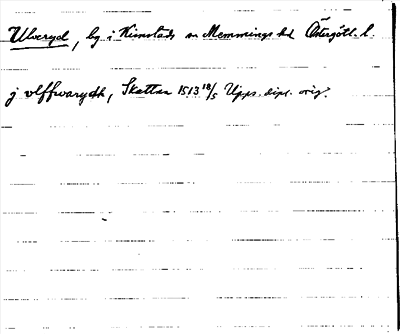 Ulveryd, by i Kimstads sn Memmings hd Östergötl. l.
j vlffwarydh, Skattan 1513 18/5 Upps. dipl. orig.